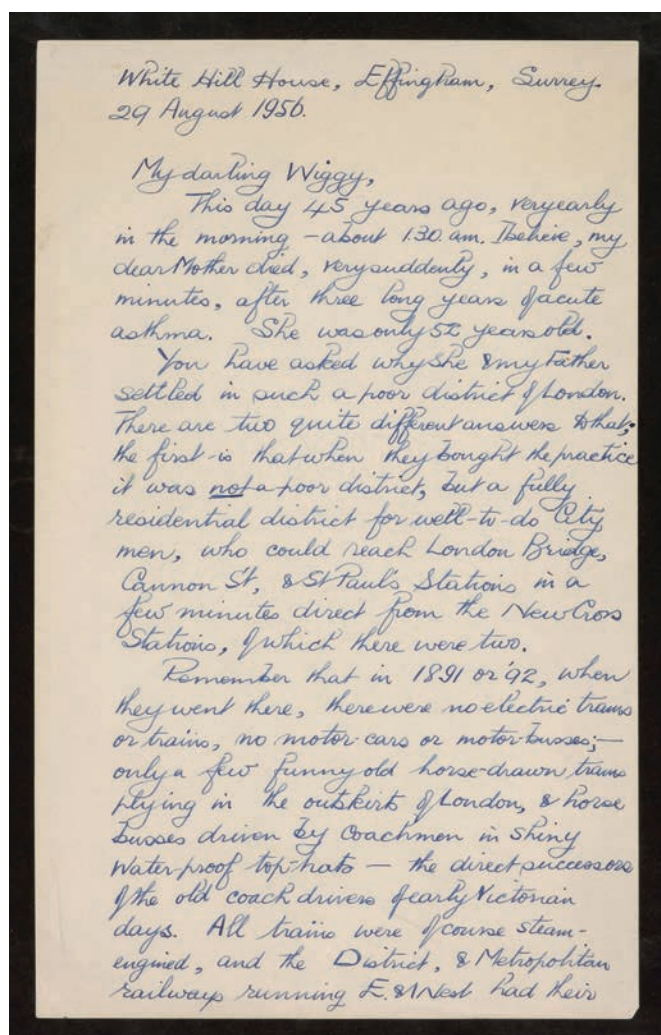 White Hill House, Effingham, Surrey.
29 August 1956.
My darling Wiggy,
This day 45 years ago, very early
in the morning – about 1.30. am. I believe, my
dear Mother died, very suddenly, in a few
minutes, after three long years of acute
asthma. She was only 52 years old.
You have asked why she & my Father
settled in such a poor district of London.
There are two quite different answers to that;
the first is that when they bought the practice
it was not a poor district, but a fully
residential district for well-to-do City
men, who could reach London Bridge,
Cannon St, & St Paul's Stations in a
few minutes direct from the New Cross
Stations, of which there were two.
Remember that in 1891 or '92, when
they went there, there were no electric trams
or trains, no motor-cars or motor-busses; —
only a few funny old horse-drawn trams
plying in the outskirts of London, & horse
busses driven by coachmen in shiny
water-proof top-hats — the direct successors
of the old coach drivers of early Victorian
days. All trains were of course steam-
engined, and the District, & Metropolitan
railways running E. & West had their